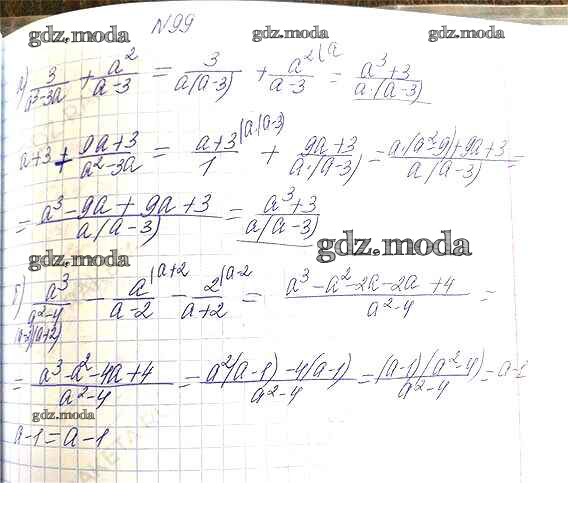 №99
gdz.moda gdz.moda gdz.moda
а) 3/(a²-3a) + a²/(a-3) = 3/(a(a-3)) + a²(a/(a-3) = (a³+3)/(a·(a-3))
a+3 + (9a+3)/(a²-3a) = (a+3)/1 (a·(a-3) + (9a+3)/(a·(a-3)) = (a·(a²-9)+9a+3)/(a(a-3)) =
= (a³-9a+9a+3)/(a(a-3)) = (a³+3)/(a(a-3))
gdz.moda
gdz.moda
б) a³/(a²-4) - a/(a-2) (a+2 - 2/(a+2) (a-2 = (a³-a²-2a-2a+4)/(a²-4) =
(a-2)(a+2)
= (a³-a²-4a+4)/(a²-4) = (a²(a-1)-4(a-1))/(a²-4) = ((a-1)(a²-4))/(a²-4) = a-1
gdz.moda
a-1=a-1